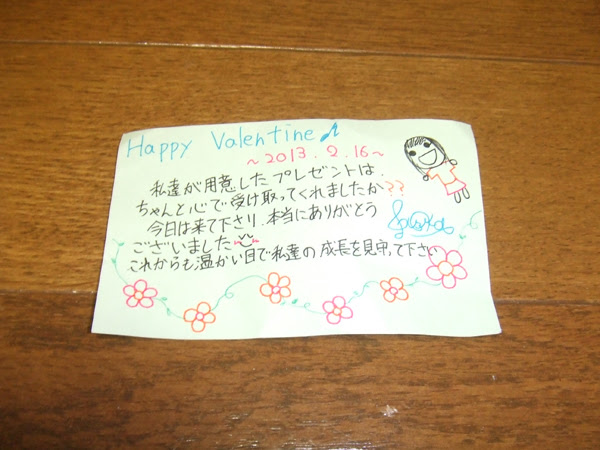 Happy Valentine♪
～2013.2.16～
私達が用意したプレゼントは、
ちゃんと心で受け取ってくれましたか??
今日は来て下さり、本当にありがとう
ございました
これからも温かい目で私達の成長を見守って下さい